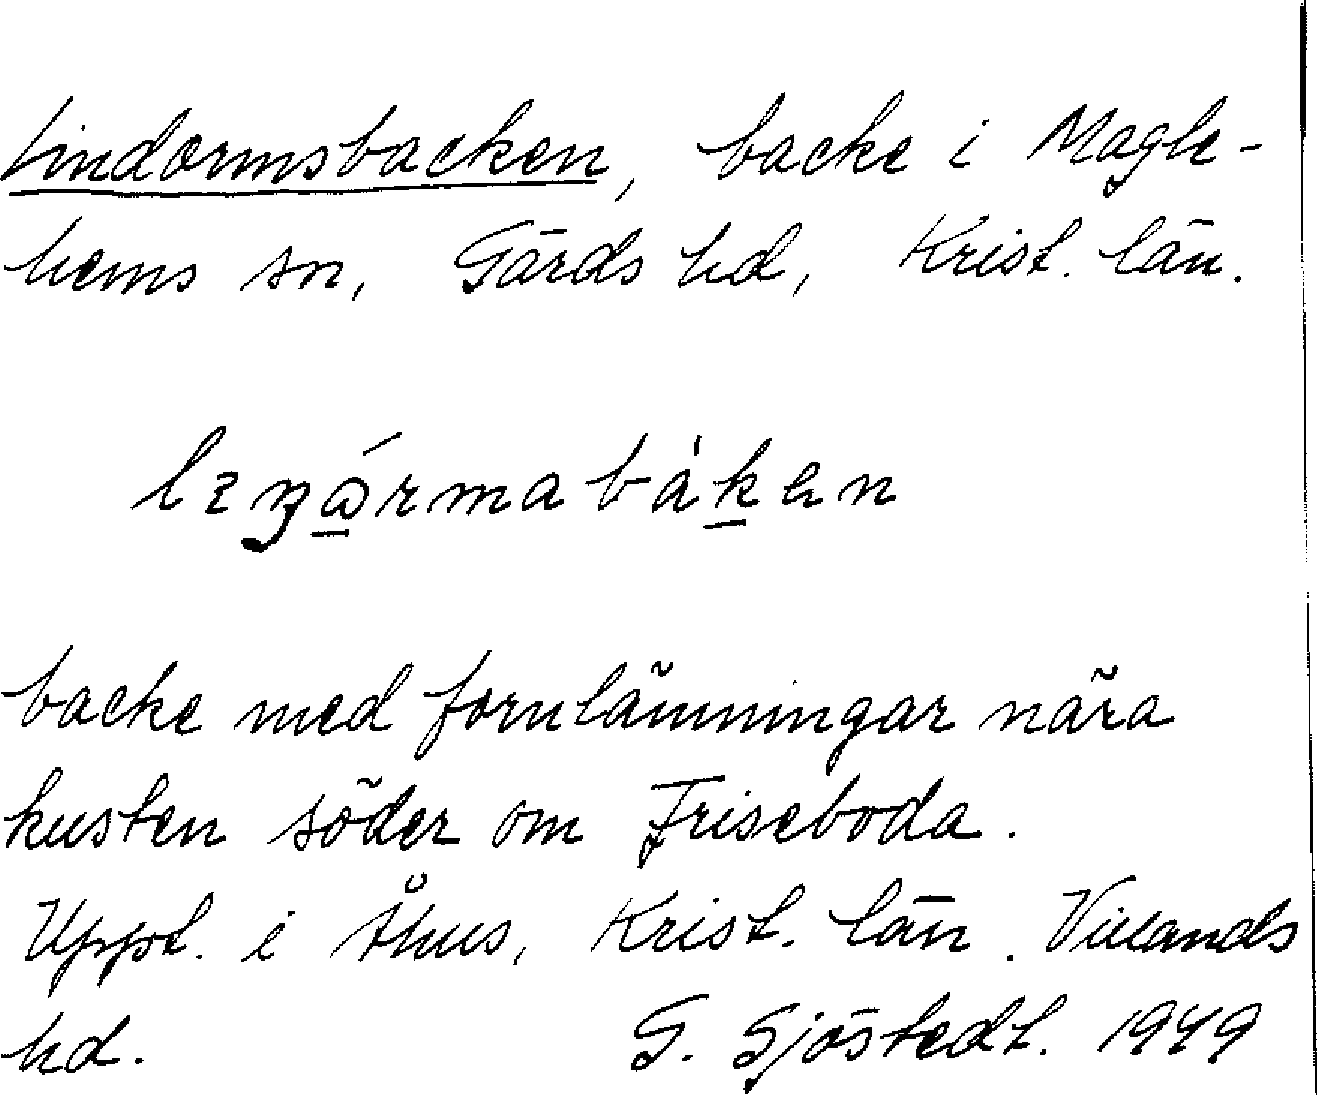 Lindormsbacken, backe i Magle-
hems sn, Gärds hd, Krist. län.
backe med fornlämningar nära
kusten söder om Friseboda.
Uppt. i Åhus, Krist. län. Villands
hd. G. Sjöstedt. 1949